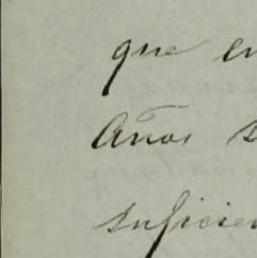 que en
Años s
suficien